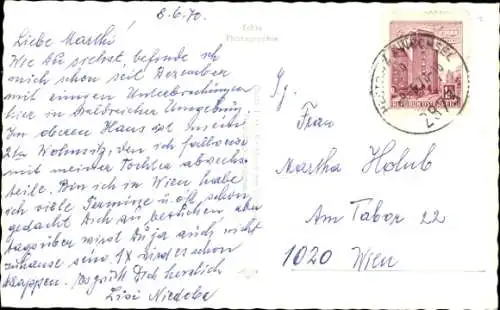 8.6.70.
Liebe Marthi!
Wie Du siehst, befinde ich
mich schon seit Dezember
mit einigen Unterbrechungen
hier in waldreicher Umgebung.
Im oberen Haus ist meine
2te Wohnsitz, den ich
mit meiner Tochter
teile. Bin ich in Wien habe
ich viele Termine u. oft schon
gedacht Dich an
tagsüber wirst Du ja auch nicht
zuhause sein. 1x wird es schon
klappen. Es grüßt Dich herzlich
Lisi
Echte
Photographie
Fg.
Frau
Martha Holub
Am Tabor 22
1020 Wien
REPUBLIK ÖSTERREICH